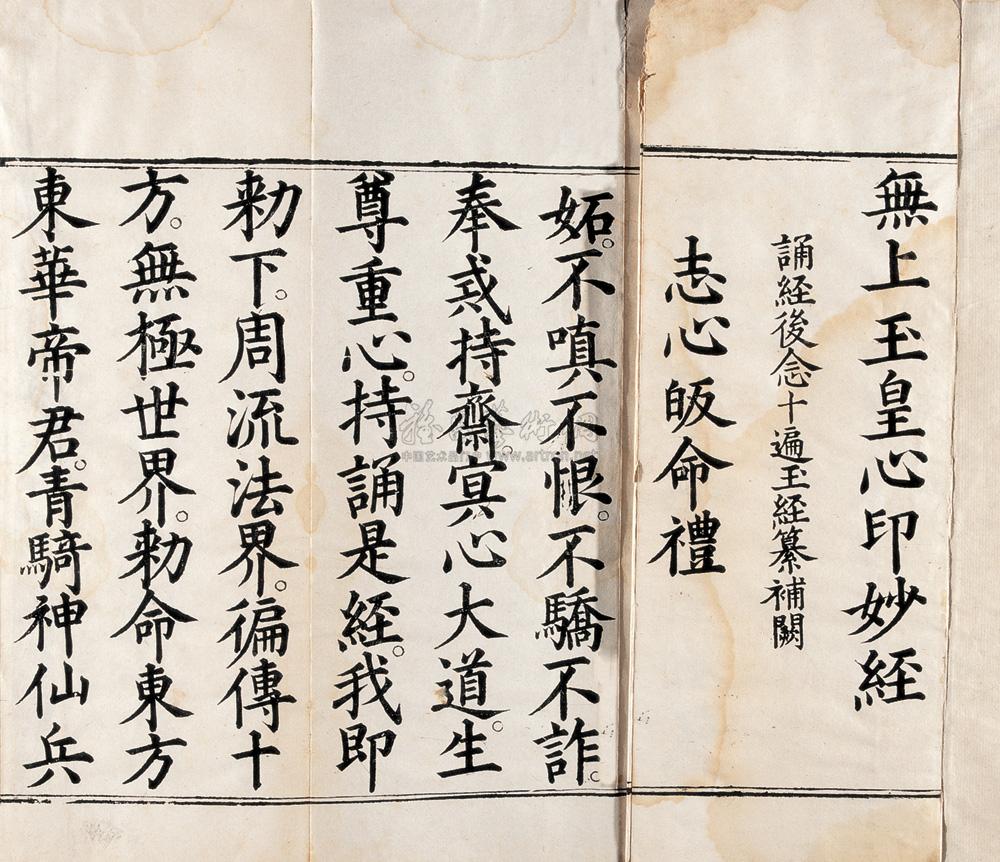 無上玉皇心印妙経
誦経後念十遍玉経纂補闕
志心皈命禮
妬。不嗔不恨。不驕不詐。
奉戒持齋。寘心大道。生
尊重心。持誦是経。我即
勅下。周流法界。徧傳十
方。無極世界。勅命東方
東華帝君。青騎神仙兵
中国艺术品 www.artron.net